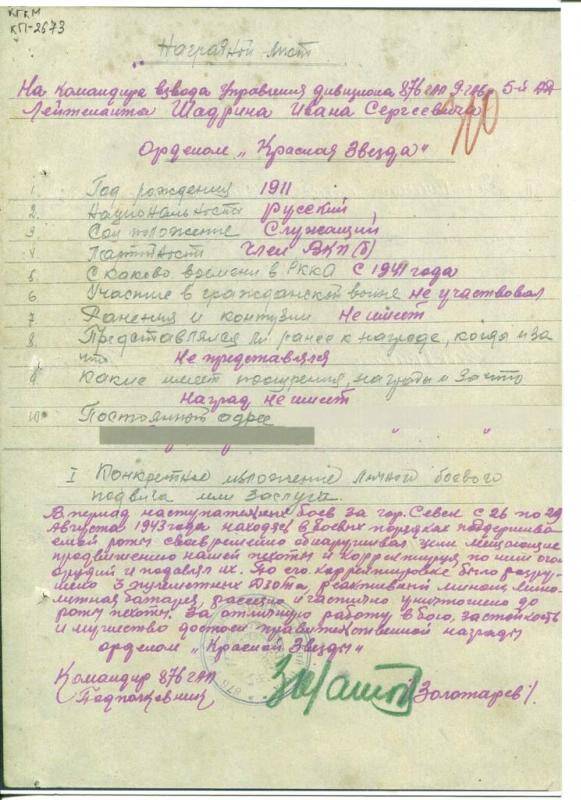 КГКМ
КП-2673
Наградной лист
На командира взвода управления дивизиона 876 гап 9 габ 5-й АД
Лейтенанта Шадрина Ивана Сергеевича
Орденом „Красная Звезда"
1. Год рождения 1911
2. Национальность русский
3 Соц положение Служащий
4 Партийность Член ВКП(б)
5 С каково времени в РККА с 1941 года
6 Участие в гражданской войне не участвовал
7 Ранения и контузии Не имеет
8 Представлялся ли ранее к награде, когда и за
что Не представлялся
9 Какие имеет поощрения, награды и за что
Наград не имеет
10 Постоянный адрес
I Конкретное изложение личного боевого
подвига или заслуги.
В период наступательных боев за гор. Севск с 26 по 29
Августа 1943 года находясь в боевых порядках поддержива
емой роты своевременно обнаруживал цели мешающие
продвижению нашей пехоты и корректируя по ним огонь
орудий и подавлял их. По его корректировке было разру-
шено 3 пулеметных Дзота, мино-
метная батарея, рассеяно и частично уничтожено до
роты пехоты. За отличную работу в бою, за стойкость
и мужество достоен правительственной награды
орденом „Красной Звезды"
Командир 876 гап
Подполковник /Золотарев/.